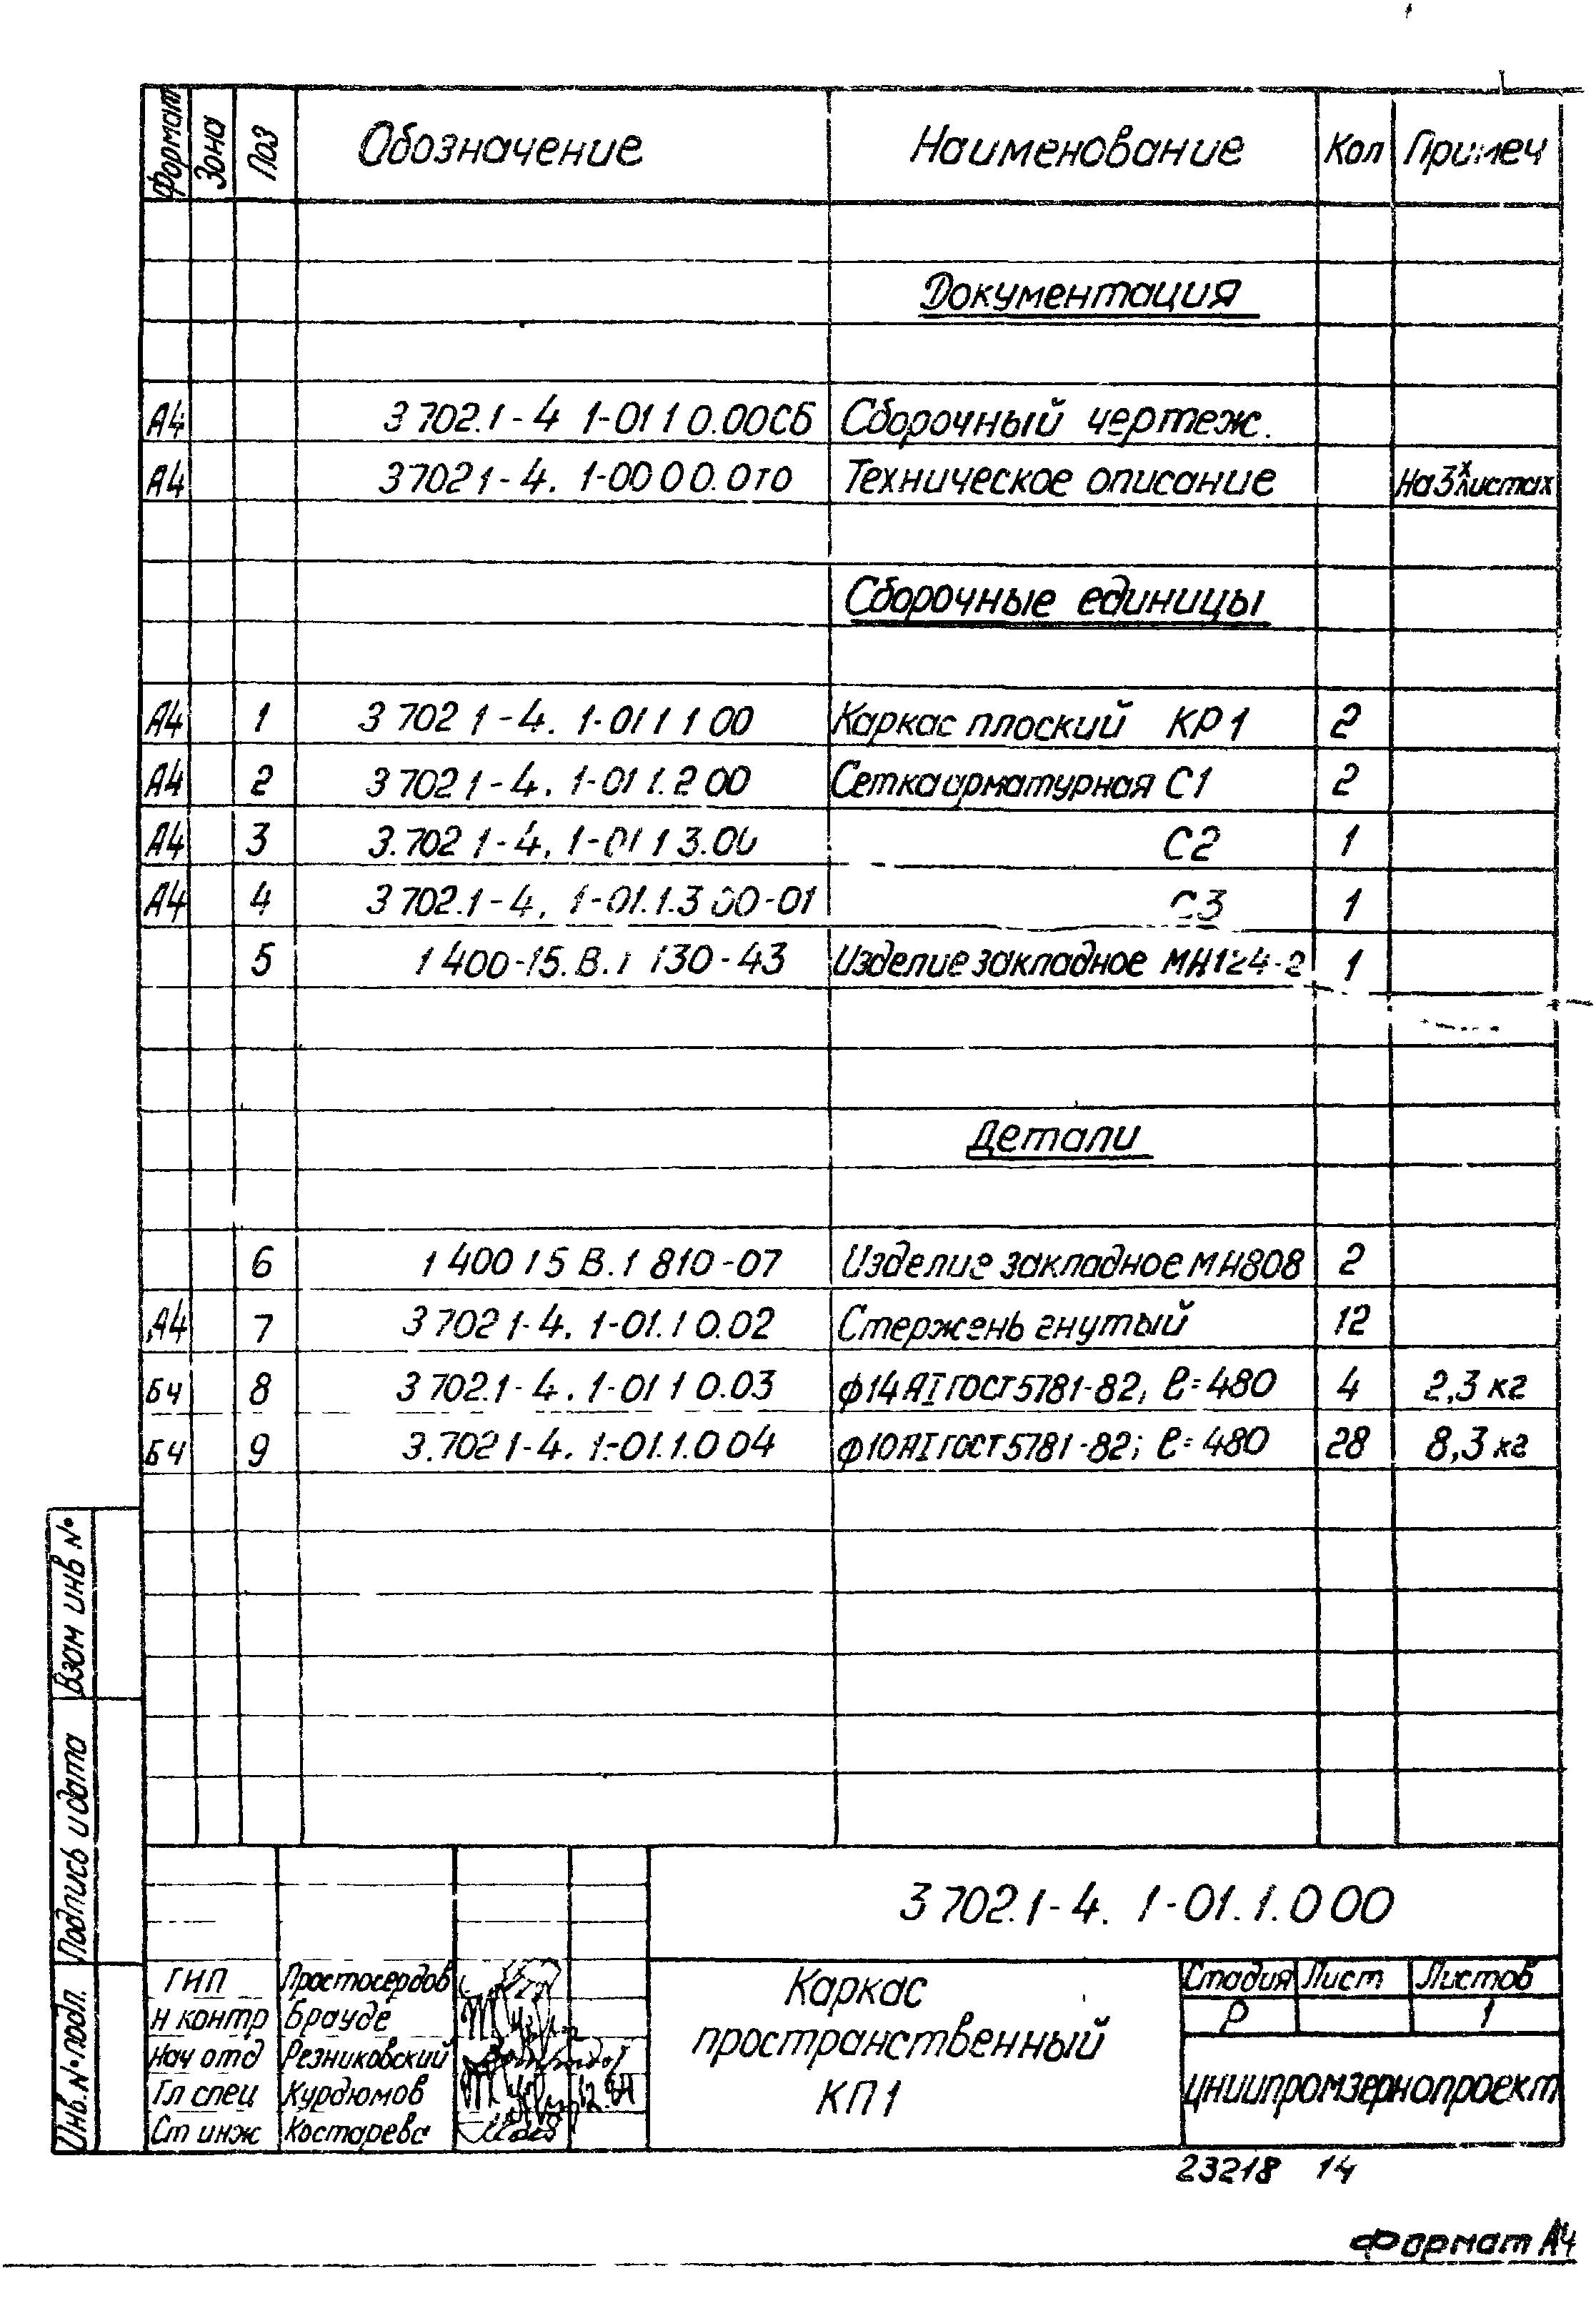 Формат Зона Поз Обозначение Наименование Кол Примеч
Документация
А4 3 702.1-4 1-01 1 0.00СБ Сборочный чертеж.
А4 3 702 1-4. 1-00 0 0.0ТО Техническое описание На 3х листах
Сборочные единицы
А4 1 3 702 1-4. 1-01 1 1 00 Каркас плоский КР1 2
А4 2 3 702 1-4. 1-01 1.2 00 Сетка арматурная С1 2
А4 3 3.702 1-4. 1-01 1 3.00 С2 1
А4 4 3 702.1-4. 1-01.1.3 00-01 С3 1
5 1 400-15.В.1 130-43 Изделие закладное МН124-2 1
Детали
6 1 400 15 В.1 810-07 Изделие закладное МН808 2
А4 7 3 702 1-4. 1-01.1 0.02 Стержень гнутый 12
БЧ 8 3 702.1-4. 1-01 1 0.03 ф14АI ГОСТ 5781-82; ℓ=480 4 2,3 кг
БЧ 9 3.702 1-4. 1-01.1.0 04 ф10АI ГОСТ 5781-82; ℓ=480 28 8,3 кг
Взам инв №
Подпись и дата
Инв. № подл.
3 702.1-4. 1-01.1.0 00
ГИП Простосердов
Н контр Брауде
Нач отд Резниковский
Гл спец Курдюмов
Ст инж Костарева
Каркас
пространственный
КП1
Стадия Лист Листов
Р 1
ЦНИИПРОМЗЕРНОПРОЕКТ
23218 14
Формат А4